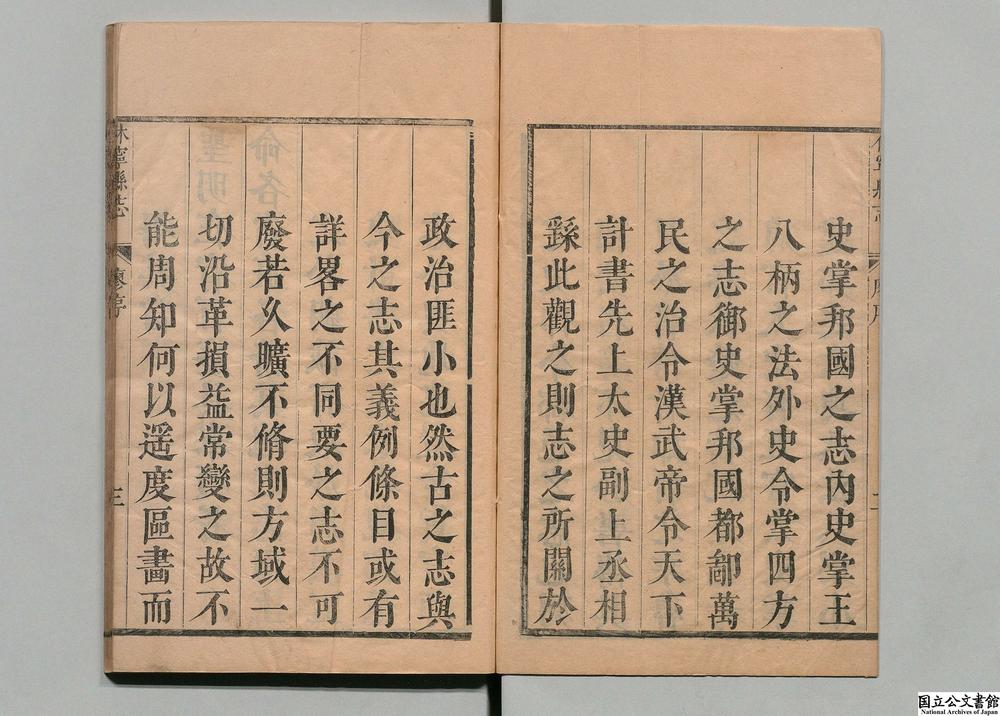 史掌邦國之志內史掌王
八柄之法外史令掌四方
之志御史掌邦國都鄙萬
民之治令漢武帝令天下
計書先上太史副上丞相
繇此觀之則志之所關於
政治匪小也然古之志與
今之志其義例條目或有
詳畧之不同要之志不可
廢若乆曠不脩則方域一
切沿革損益常變之故不
能周知何以遥度區畵而
休寧縣志
廖序
三
国立公文書館
National Archives of Japan